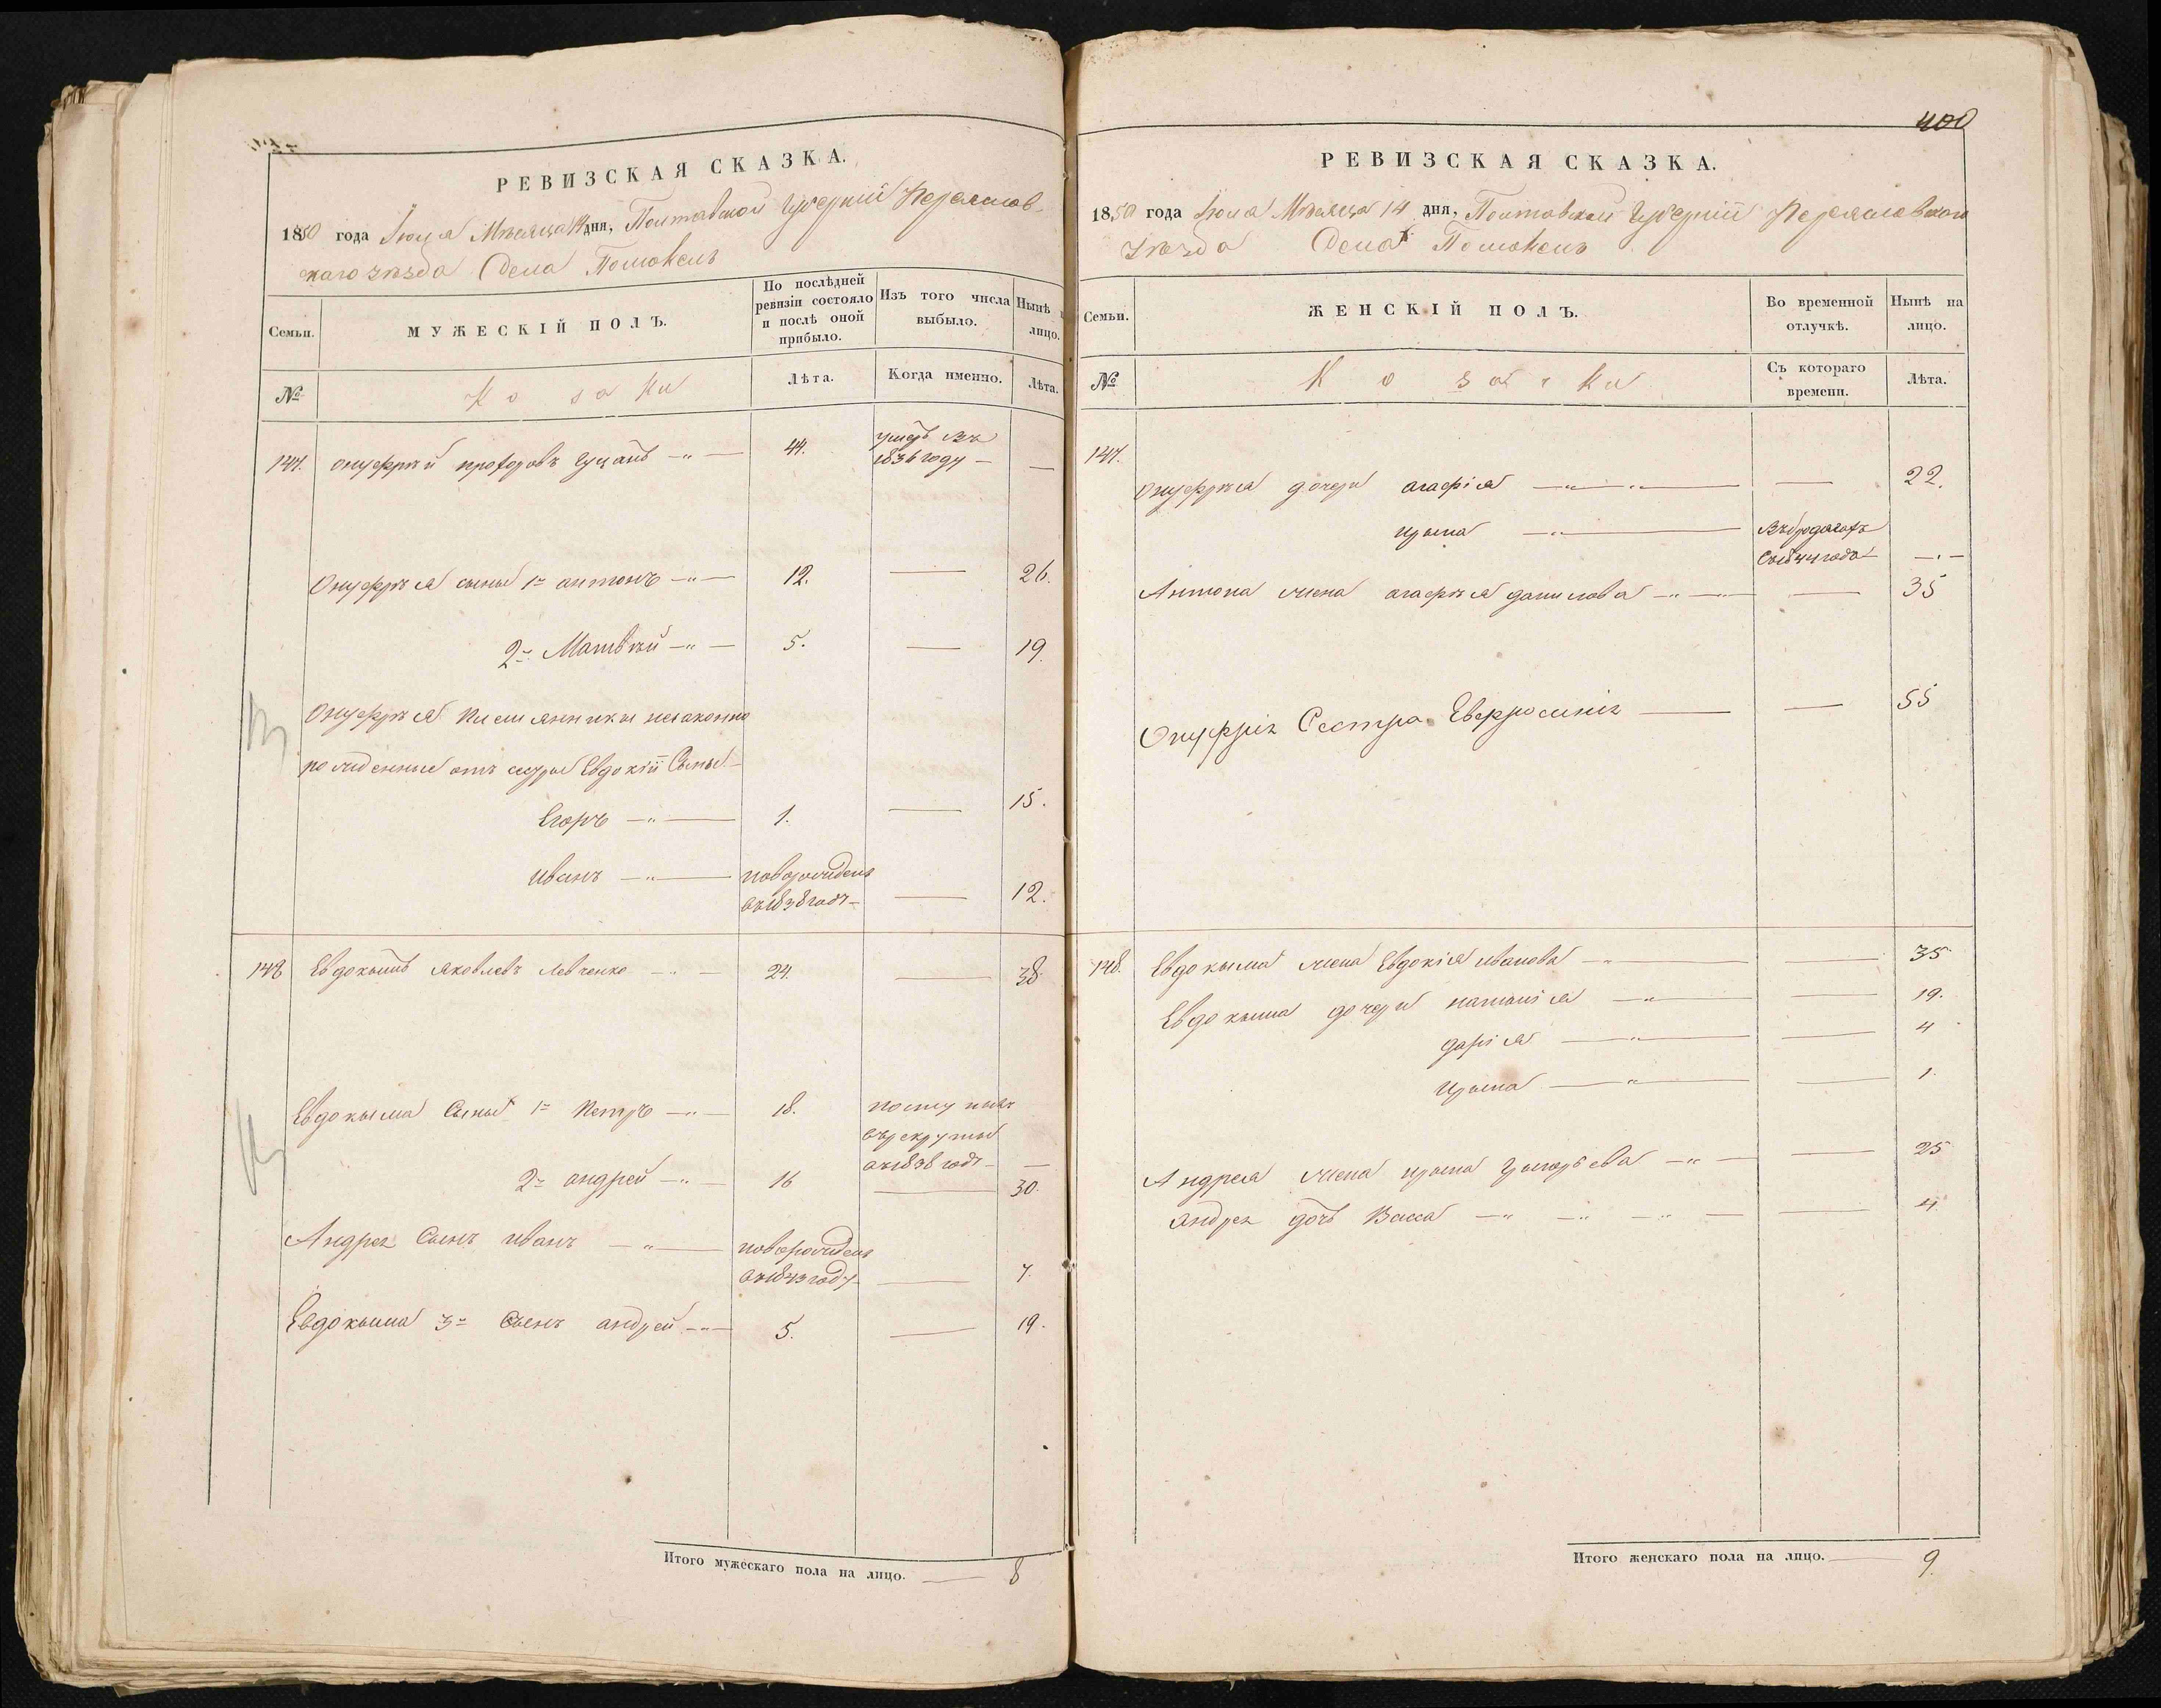 РЕВИЗСКАЯ СКАЗКА.
1850 года Июня Мѣсяца 14 дня, Полтавской Губерніи Переяслов-
скаго Уѣзда Села Помоклъ
Семьи.
МУЖЕСКІЙ ПОЛЪ.
По послѣдней
ревизіи состояло
и послѣ оной
прибыло.
Изъ того числа
выбыло.
Нынѣ
лицо.
№
Козаки
Лѣта.
Когда именно.
Лѣта.
147. Онуфрий Прохоровъ 44. умеръ въ
1836 году —
Онуфрѣя сыны 1й антонъ 12. — 26.
2й Матвѣй 5. — 19.
Онуфрѣя племянники незаконно
рожденные отъ сестры Евдокіи Сыны
Егоръ 1. — 15.
иванъ новорожденъ
въ 1838 годѣ — 12.
148 Евдокымъ Яковлевъ Левченко 24. — 38.
Евдокыма Сыны 1й Петръ 18. поступилъ
въ рекруты
въ 1838 годѣ —
2й андрей 16 — 30.
Андрея Сынъ иванъ новорожденъ
въ 1843 году — 7.
Евдокыма 3й Сынъ андрей 5. — 19.
Итого мужескаго пола на лицо. — 8
400
РЕВИЗСКАЯ СКАЗКА.
1850 года Июня Мѣсяца 14 дня, Полтавской Губерніи Переясловскаго
Уѣзда Села Помоклъ
Семьи.
ЖЕНСКІЙ ПОЛЪ.
Во временной
отлучкѣ.
Нынѣ на
лицо.
№
Козачки
Съ котораго
времени.
Лѣта.
147.
Онуфрѣя дочери агафія — 22.
Ирына
съ 1844 года —
Антона жена агафѣя данилова — 35
Онуфрія Сестра Евфросинія — 55
148. Евдокыма жена Евдокія иванова — 35
Евдокыма дочери наталія — 19.
дарія — 4
Ирына — 1.
Андрея жена ирына григорьева — 25
андрея дочь Васса — 4.
Итого женскаго пола на лицо. — 9.